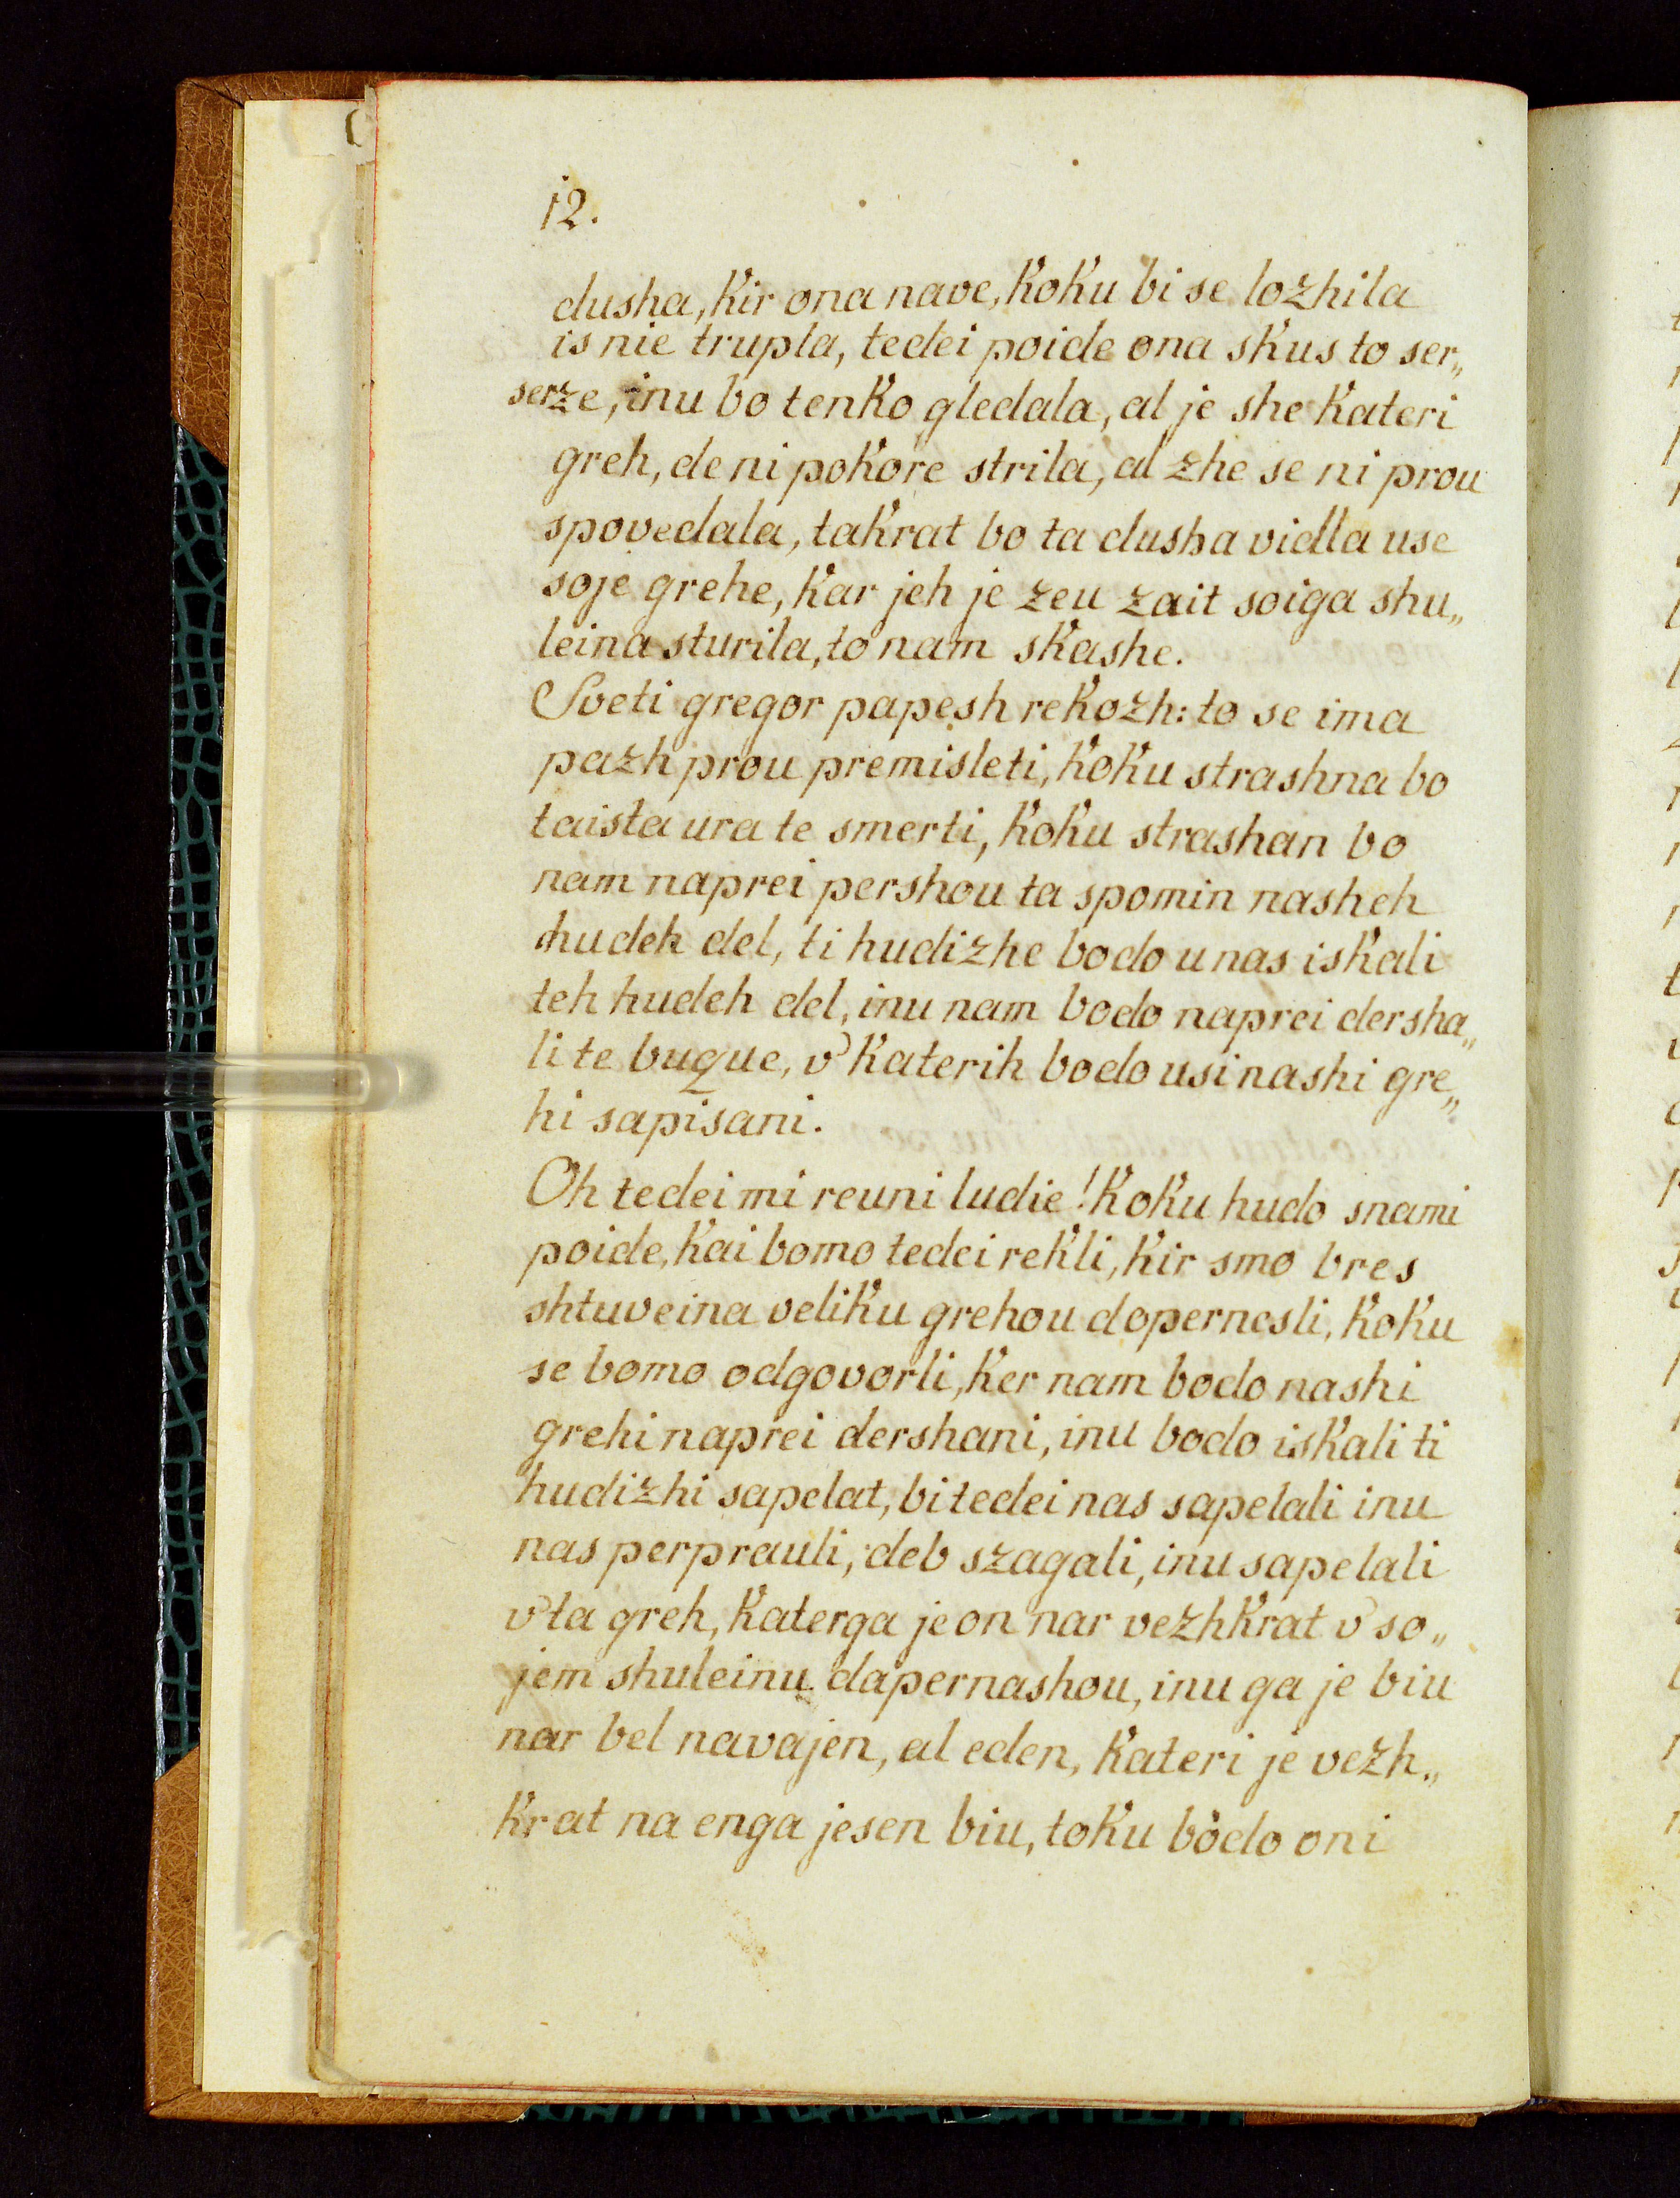 12.
dusha, kir ona nave, koku bi se lozhila
is nie trupla, tedei poide ona skus to ser„
serze, inu bo tenko gledala, al je she kateri
greh, de ni pokore strila, al zhe se ni prou
spovedala, takrat bo ta dusha vidla use
soje grehe, kar jeh je zeu zait soiga shu„
leina sturila, to nam skashe.
Sveti gregor papesh rekozh: to se ima
pazh prou premisleti, koku strashna bo
taista ura te smerti, koku strashan bo
nam naprei pershou ta spomin nasheh
hudeh del, ti hudizhe bodo u nas iskali
teh hudeh del, inu nam bodo naprei dersha„
li te buque, v katerih bodo usi nashi gre„
hi sapisani.
Oh tedei mi reuni ludie! koku hudo snami
poide, kai bomo tedei rekli, kir smo bres
shtuveina veliku grehou dopernesli, koku
se bomo odgovorli, ker nam bodo nashi
grehi naprei dershani, inu bodo iskali ti
hudizhi sapelat, bi tedei nas sapelali inu
nas perprauli, deb szagali, inu sapelali
v ta greh, katerga je on nar vezhkrat v so„
jem shuleinu dapernashou, inu ga je biu
nar bel navajen, al eden, kateri je vezh„
krat na enga jesen biu, toku bodo oni